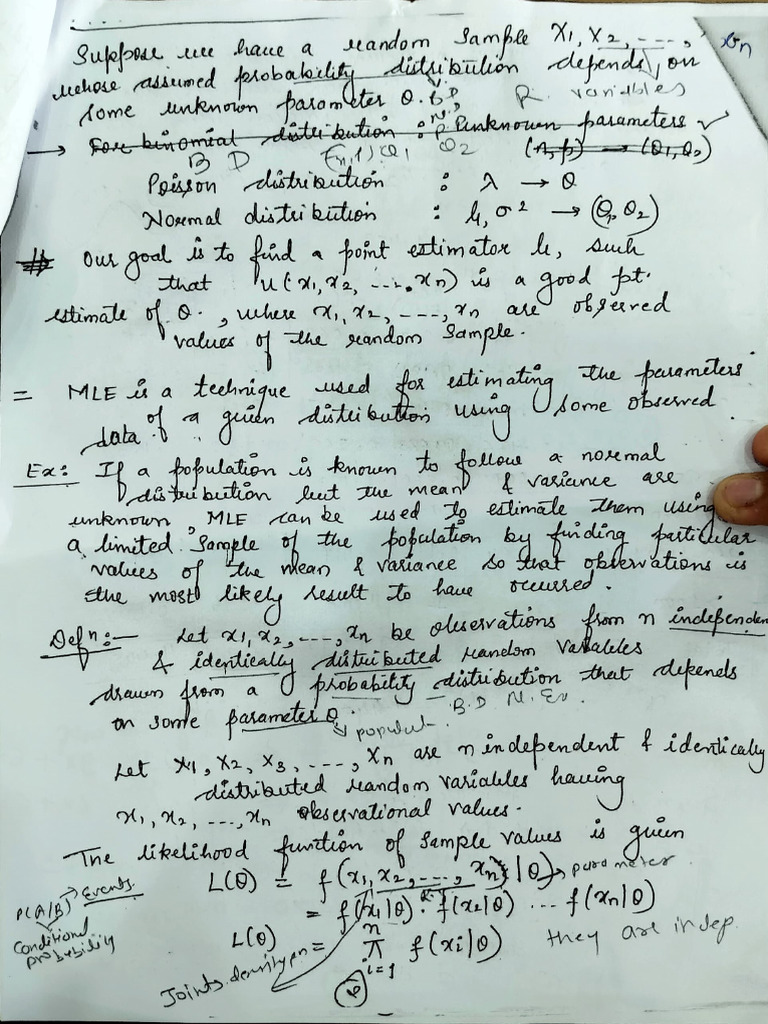 Suppose we have a random sample X1, X2, ..., Xn
whose assumed probability distribution depends on
R. variables
some unknown parameter θ. B.D
→ For binomial distribution : unknown parameters ✓
B D (n,p) θ1 θ2 (n,p) → (θ1,θ2)
Poisson distribution : λ → θ
Normal distribution : μ, σ² → (θ1, θ2)
# Our goal is to find a point estimator u, such
that u(x1, x2, ..., xn) is a good pt.
estimate of θ, where x1, x2, ..., xn are observed
values of the random sample.
= MLE is a technique used for estimating the parameters
of a given distribution using some observed
data.
Ex: If a population is known to follow a normal
distribution but the mean & variance are
unknown, MLE can be used to estimate them using
a limited sample of the population by finding particular
values of the mean & variance so that observations is
the most likely result to have occurred.
Defn:- Let x1, x2, ..., xn be observations from n independen
& identically distributed random variables
drawn from a probability distribution that depends
on some parameter θ B.D N.
populat.
Let X1, X2, X3, ..., Xn are n independent & identically
distributed random variables having
x1, x2, ..., xn observational values.
The likelihood function of sample values is given
L(θ) = f(x1, x2, ..., xn | θ) → parameter
P(A/B) → Events
= f(x1|θ) · f(x2|θ) ... f(xn|θ)
Conditional probability
L(θ) = n π i=1 f(xi|θ) they are indep.
Joint density fn